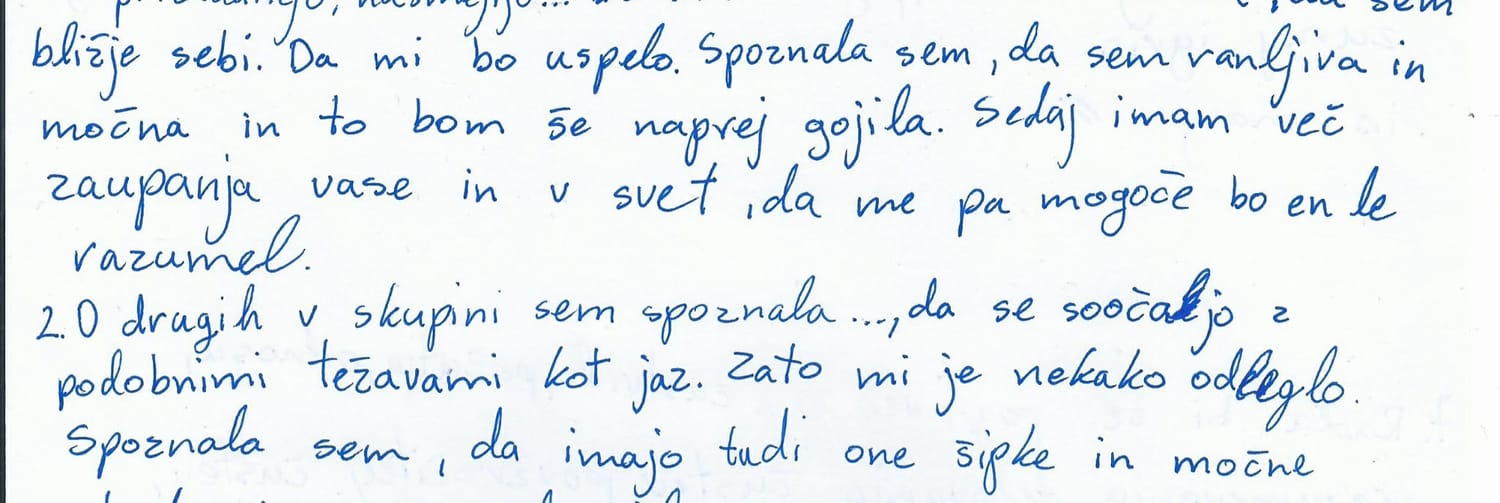 sem
bližje sebi. Da mi bo uspelo. Spoznala sem, da sem ranljiva in
močna in to bom še naprej gojila. Sedaj imam več
zaupanja vase in v svet, da me pa mogoče bo en le
razumel.
2. O drugih v skupini sem spoznala..., da se soočajo z
podobnimi težavami kot jaz. Zato mi je nekako odleglo.
Spoznala sem, da imajo tudi one šipke in močne